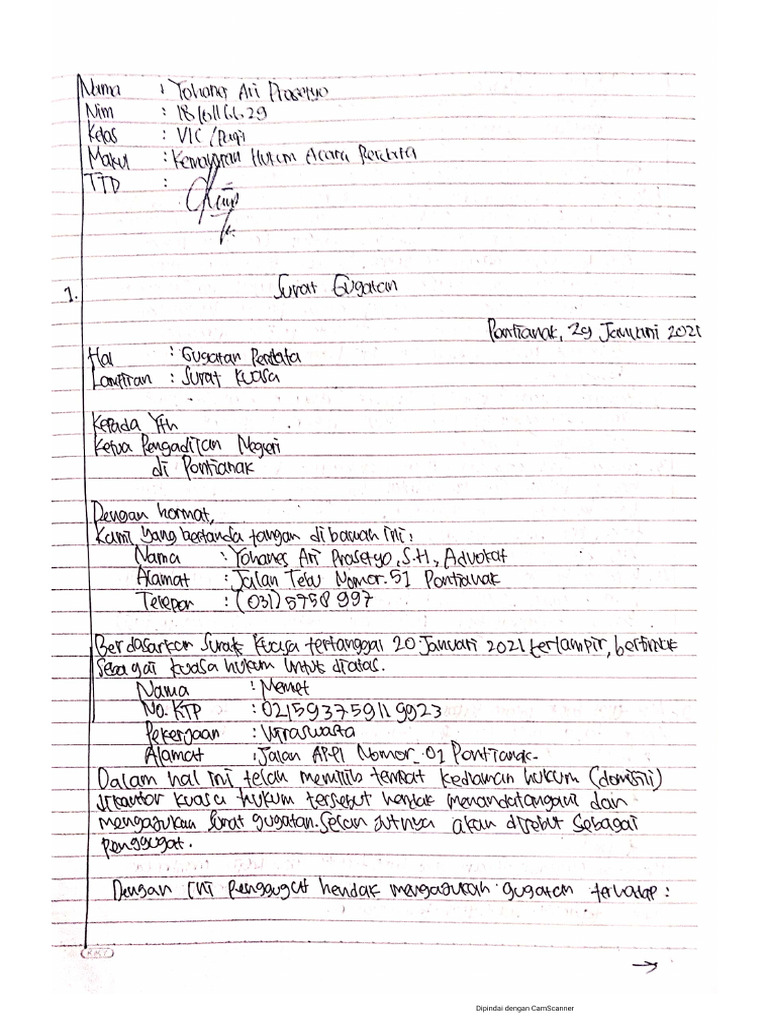 Nama : Yohanes Ari Prasetyo
Nim :
Kelas : VIC / Pagi
Makul : Kemahiran Hukum Acara Perdata
TTD :
1. Surat Gugatan
Pontianak, 29 Januari 2021
Hal : Gugatan Perdata
Lampiran : Surat Kuasa
Kepada Yth
Ketua Pengadilan Negeri
di Pontianak
Dengan hormat,
Kami yang bertanda tangan dibawah ini :
Nama : Yohanes Ari Prasetyo, S.H., Advokat
Alamat : Jalan Tebu Nomor. 51 Pontianak
Telepon : (031) 5758 997
Berdasarkan Surat Kuasa tertanggal 20 Januari 2021 terlampir, bertindak
sebagai kuasa hukum untuk diatas.
Nama : Memet
No. KTP : 021593759119923
Pekerjaan : Wiraswasta
Alamat : Jalan Nomor. 01 Pontianak.
Dalam hal ini telah memilih tempat kediaman hukum (domisili)
dikantor kuasa hukum tersebut hendak menandatangani dan
mengajukan surat gugatan. Selanjutnya akan disebut sebagai
penggugat.
Dengan ini Penggugat hendak mengajukan gugatan terhadap :
→
Dipindai dengan CamScanner